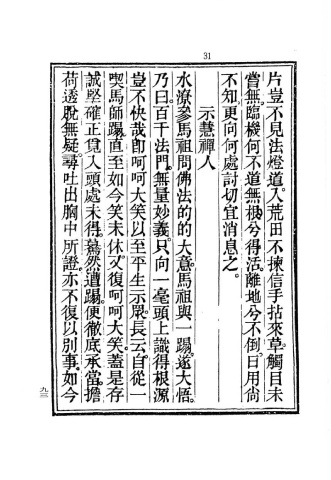 31
片豈不見法燈道入荒田不揀信手拈來草觸目未
嘗無臨機何不道無根兮得活離地兮不倒日用尙
不知更向何處討切宜消息之
示慧禪人
水潦參馬祖問佛法的的大意馬祖與一蹋遂大悟
乃曰百千法門無量妙義只向一毫頭上識得根源
豈不快哉卽呵呵大笑以至平生示眾長云自從一
喫馬師蹋直至如今笑未休又復呵呵大笑蓋是存
誠堅確正覓入頭處未得驀然遭蹋便徹底承當擔
荷透脫無疑尋吐出胸中所證亦不復以別事如今
九三